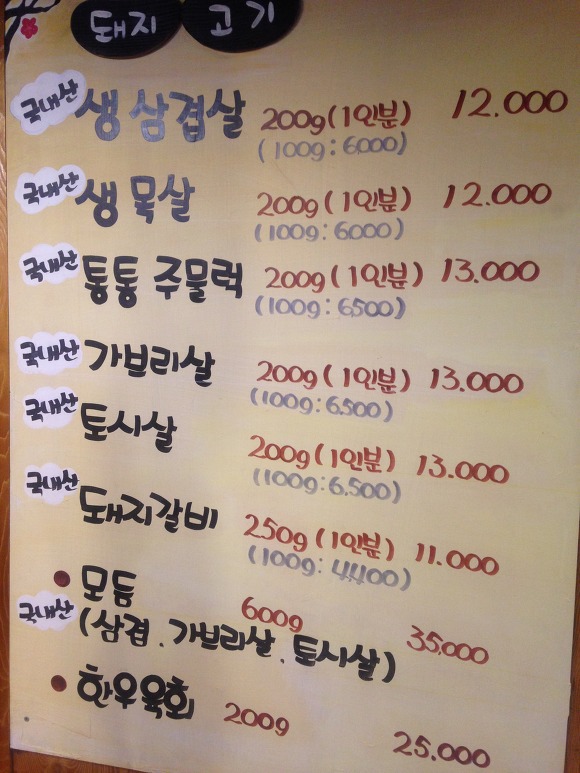 돼지 고기
국내산 생 삼겹살 200g (1인분) 12.000
(100g : 6000)
국내산 생 목살 200g (1인분) 12.000
(100g : 6.000)
국내산 통통 주물럭 200g (1인분) 13.000
(100g : 6500)
국내산 가브리살 200g (1인분) 13.000
(100g : 6.500)
국내산 토시살 200g (1인분) 13.000
(100g : 6.500)
국내산 돼지갈비 250g (1인분) 11.000
(100g : 4.400)
• 모듬 600g 35.000
국내산 (삼겹 . 가브리살 . 토시살)
• 한우육회 200g 25.000